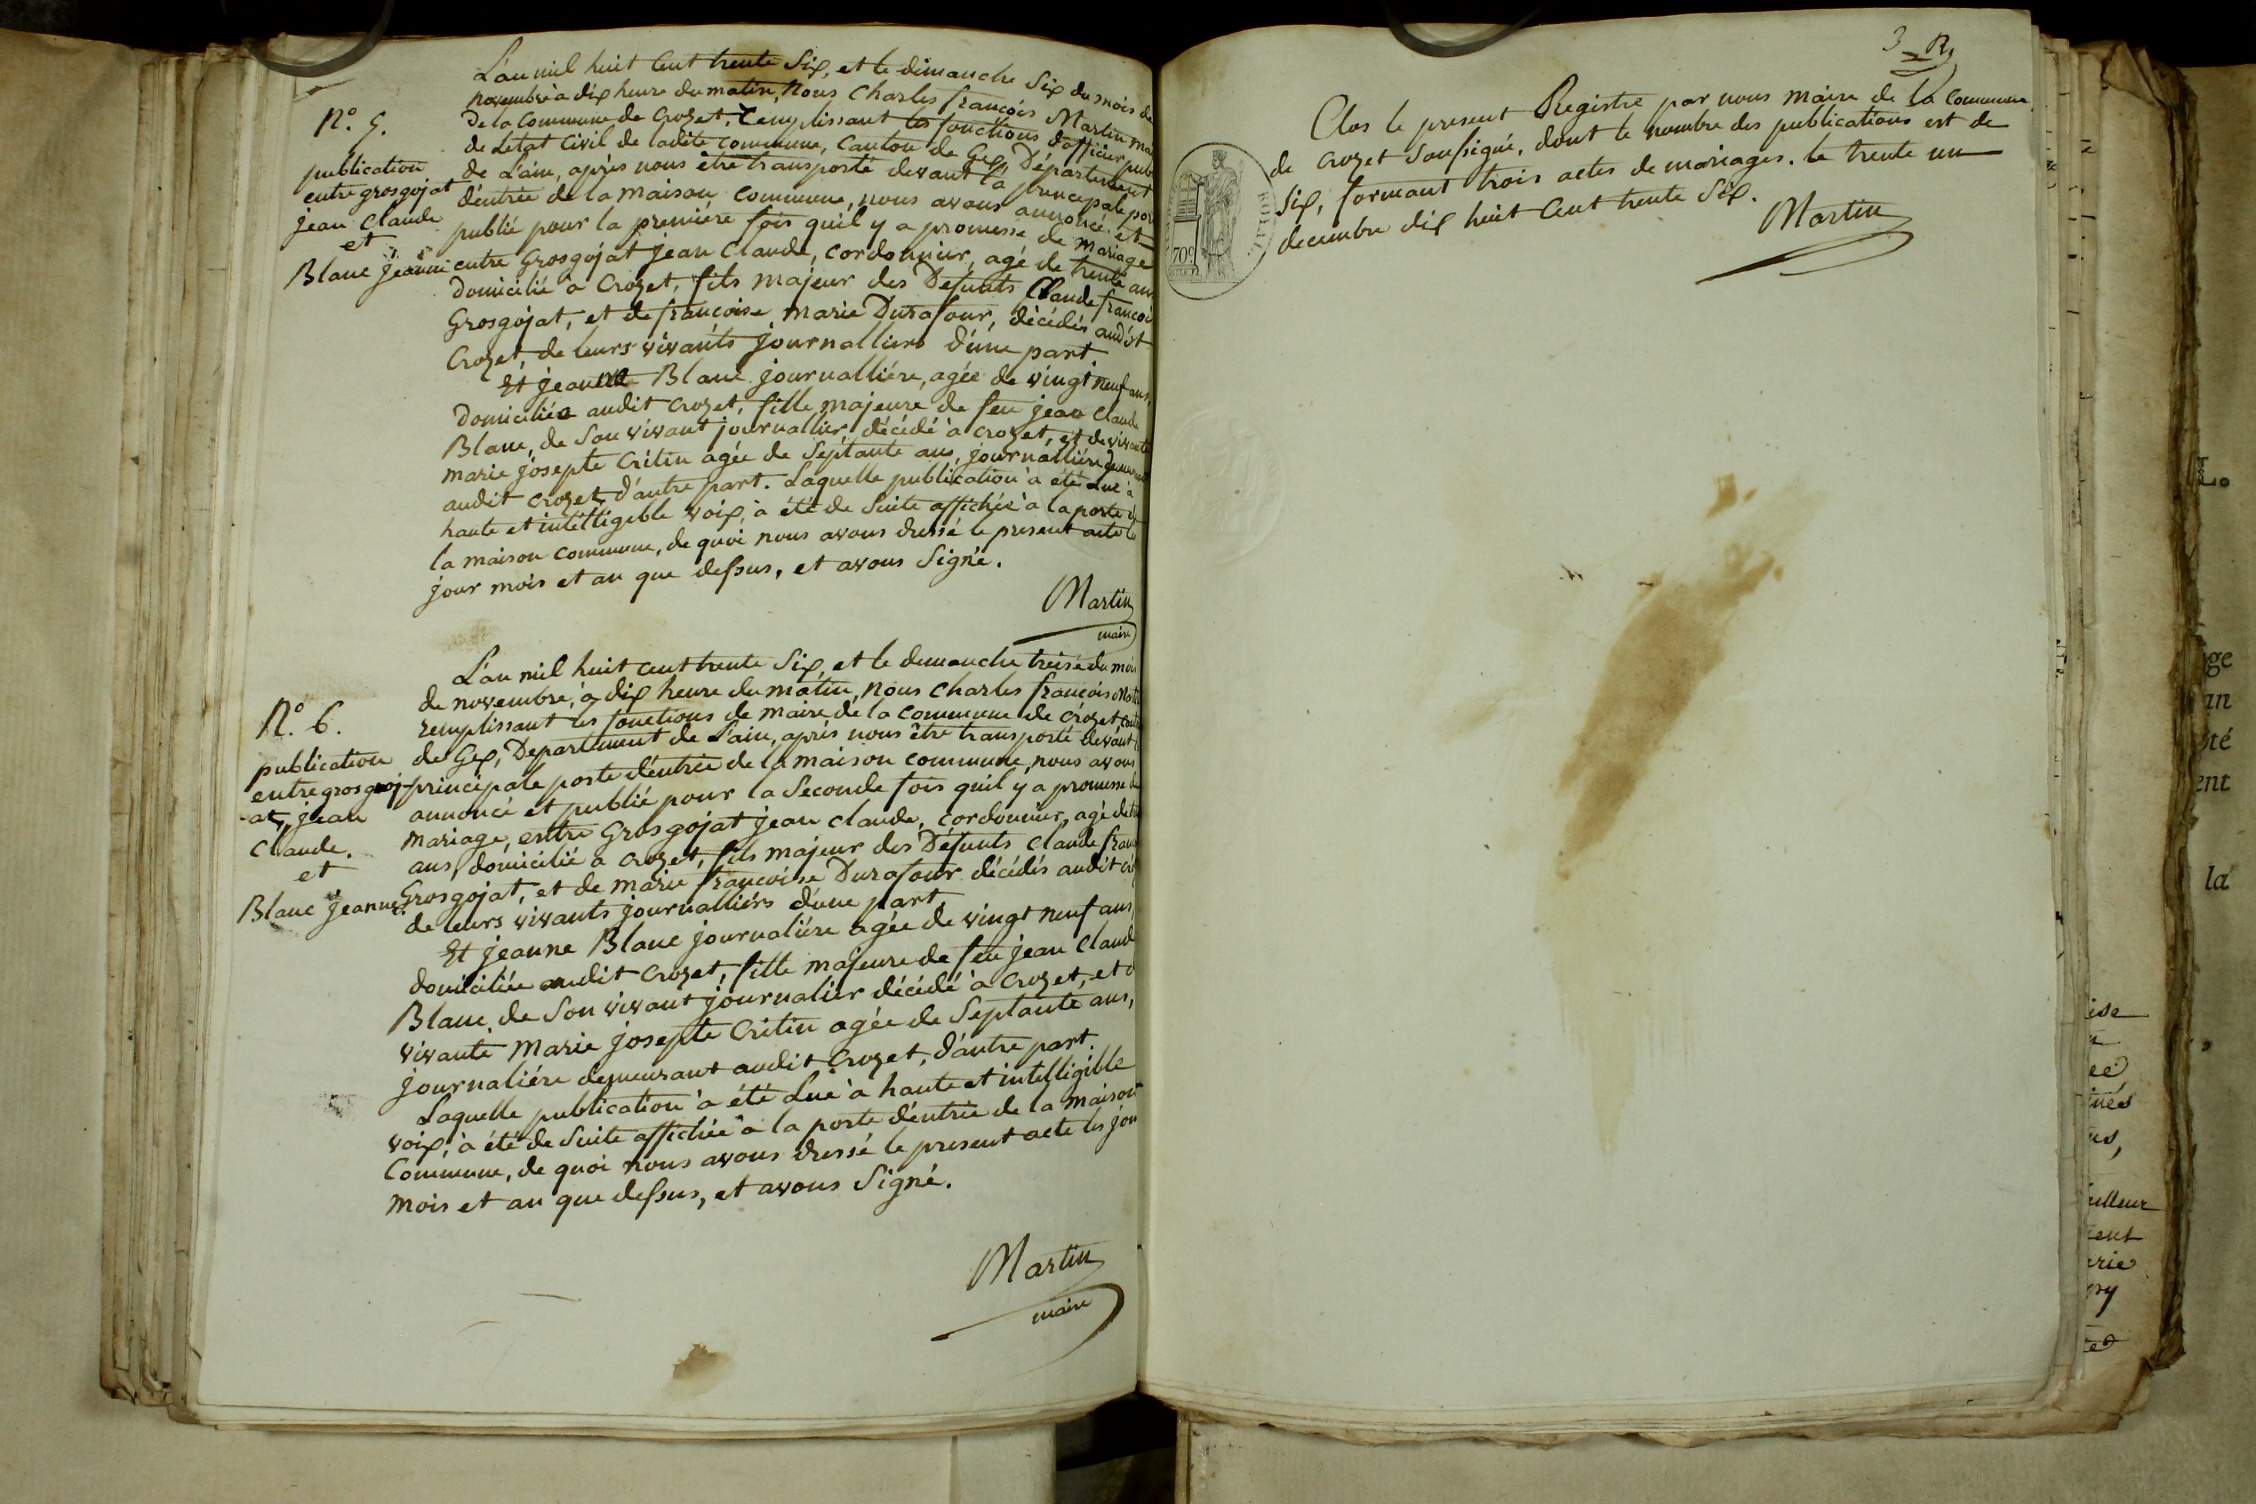 L'an mil huit cent trente Six, et le dimanche Six du mois de
novembre à dix heure du matin, Nous Charles françois Martin
de la commune de Crozet, remplissant les fonctions d'officier
de L'etat Civil de ladite commune, Canton de Gex Département
de L'ain, après nous être transporté devant la principale
d'entrée de la maison commune, nous avons annoncé et
publié pour la première fois quil y a promesse de mariage
entre Grosgojat jean Claude, cordonnier, agé de trente ans
Domicilié à Crozet, fils majeur des Defunts Claude françois
Grosgojat, et de françoise marie Durafour, décédés audit
Crozet, de leurs vivants journalliers d'une part.
Et jeanne Blanc journallière, agée de vingt neuf ans,
Domiciliée audit Crozet, fille majeure de feu jean Claude
Blanc, de son vivant journallier, décédé à Crozet, et de vivante
marie josepte Critin agée de Séptante ans, journallière
audit Crozet, d'autre part. Laquelle publication à été Lue à
haute et intelligible voix, à été de Suite affichée à la porte de
la maison commune, de quoi nous avons dressé le present acte les
jour mois et an que dessus, et avons Signé.
Martin
maire
N.º 5.
publication
entre grosgojat
jean Claude
et
Blanc jeanne
L'an mil huit cent trente Six, et le dimanche treise du mois
de novembre, à dix heure du matin, Nous Charles françois
remplissant les fonctions de maire de la commune de Crozet
de Gex, Departement de L'ain, après nous être transporté devant
principale porte d'entrée de la maison commune, nous avons
annoncé et publié pour la Seconde fois quil y a promesse de
mariage, entre Grosgojat jean claude, cordonnier, agé de
ans, domicilié à Crozet, fils majeur des Défunts Claude
Grosgojat, et de marie françoise Durafour décédés audit
de leurs vivants journalliers d'une part.
Et jeanne Blanc journalière agée de vingt neuf ans,
domiciliée audit Crozet, fille majeure de feu jean Claude
Blanc, de Son vivant journalier décédé à Crozet, et
vivante Marie josepte Critin agée de Septante ans,
journalière demeurant audit Crozet, d'autre part.
Laquelle publication à été Lue à haute et intelligible
voix, à été de Suite affichée à la porte d'entrée de la maison
Commune, de quoi nous avons dressé le present acte les jour
mois et an que dessus, et avons Signé.
Martin
maire
N.º 6.
publication
entre grosgoj-
-at, jean
Claude.
et
Blanc jeanne
3 R
Clos le present Registre par nous maire de la Commune
de Crozet Soussigné, dont le nombre des publications est de
Six, formant trois actes de mariages. le trente un
decembre dix huit Cent trente Six.
Martin
70c